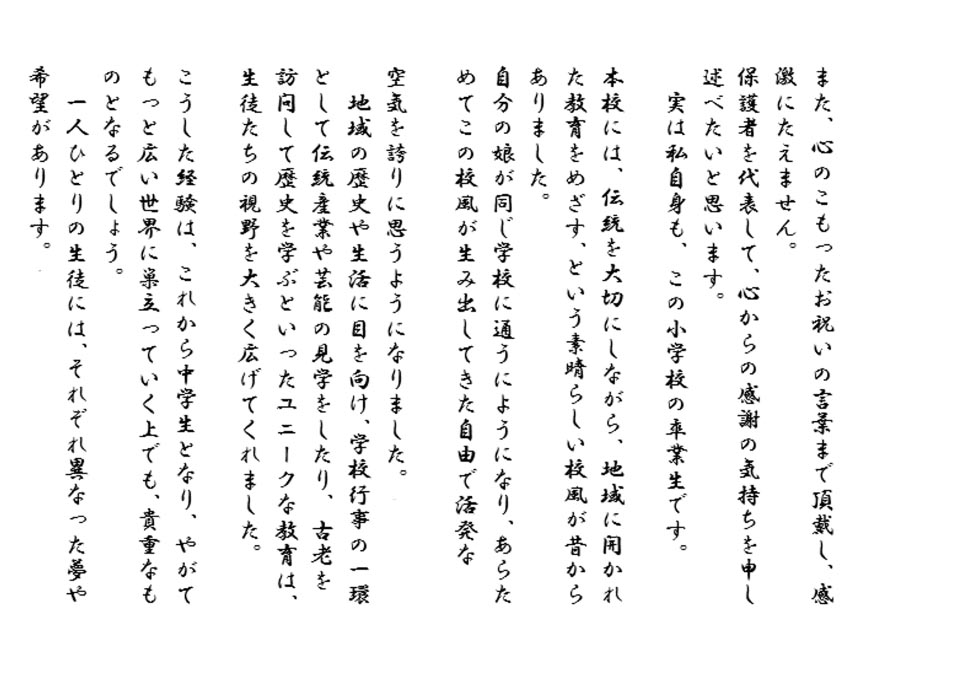 また、心のこもったお祝いの言葉まで頂戴し、感
激にたえません。
保護者を代表して、心からの感謝の気持ちを申し
述べたいと思います。
実は私自身も、この小学校の卒業生です。
本校には、伝統を大切にしながら、地域に開かれ
た教育をめざす、という素晴らしい校風が昔から
ありました。
自分の娘が同じ学校に通うにようになり、あらた
めてこの校風が生み出してきた自由で活発な
空気を誇りに思うようになりました。
地域の歴史や生活に目を向け、学校行事の一環
として伝統産業や芸能の見学をしたり、古老を
訪問して歴史を学ぶといったユニークな教育は、
生徒たちの視野を大きく広げてくれました。
こうした経験は、これから中学生となり、やがて
もっと広い世界に巣立っていく上でも、貴重なも
のとなるでしょう。
一人ひとりの生徒には、それぞれ異なった夢や
希望があります。